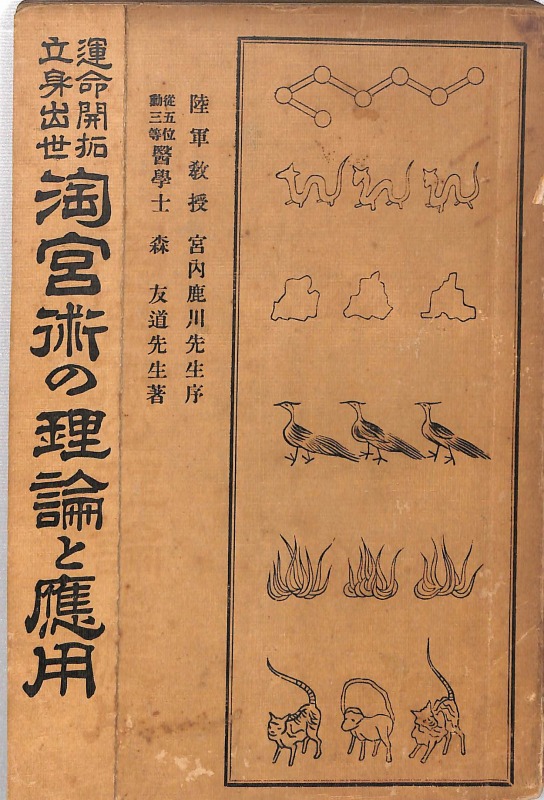 陸軍教授 宮内鹿川先生序
從五位
勳三等
醫學士 森 友道先生著
運命開拓
立身出世
淘宮術の理論と應用